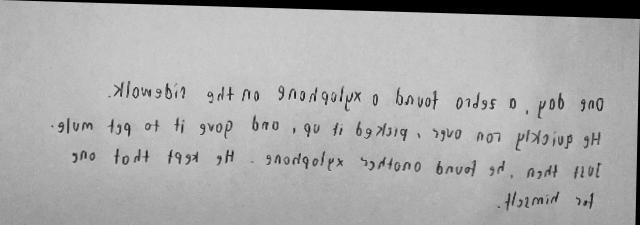 One day, a zebra found a xylophone on the sidewalk.
He quickly ran over, picked it up, and gave it to pet mule.
Just then, he found another xylophone. He kept that one
for himself.